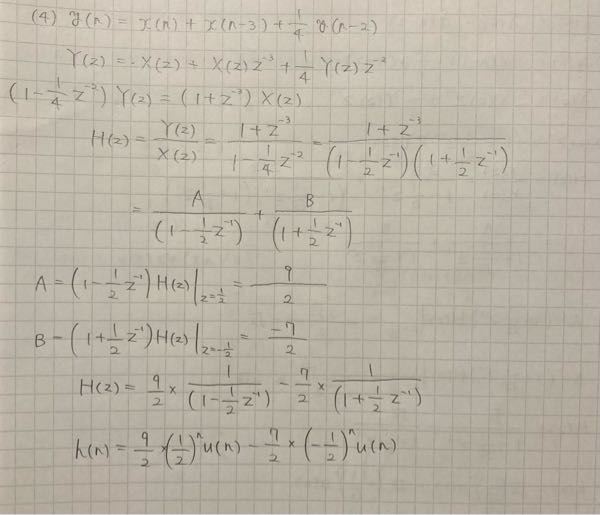 (4) y(n) = x(n) + x(n-3) + 1/4 y(n-2)
Y(z) = X(z) + X(z) z⁻³ + 1/4 Y(z) z⁻²
(1 - 1/4 z⁻²) Y(z) = (1 + z⁻³) X(z)
H(z) = Y(z)/X(z) = (1 + z⁻³)/(1 - 1/4 z⁻²) = (1 + z⁻³)/((1 - 1/2 z⁻¹)(1 + 1/2 z⁻¹))
= A/(1 - 1/2 z⁻¹) + B/(1 + 1/2 z⁻¹)
A = (1 - 1/2 z⁻¹) H(z)|z=1/2 = 9/2
B = (1 + 1/2 z⁻¹) H(z)|z=-1/2 = -7/2
H(z) = 9/2 × 1/(1 - 1/2 z⁻¹) - 7/2 × 1/(1 + 1/2 z⁻¹)
h(n) = 9/2 × (1/2)ⁿ u(n) - 7/2 × (-1/2)ⁿ u(n)